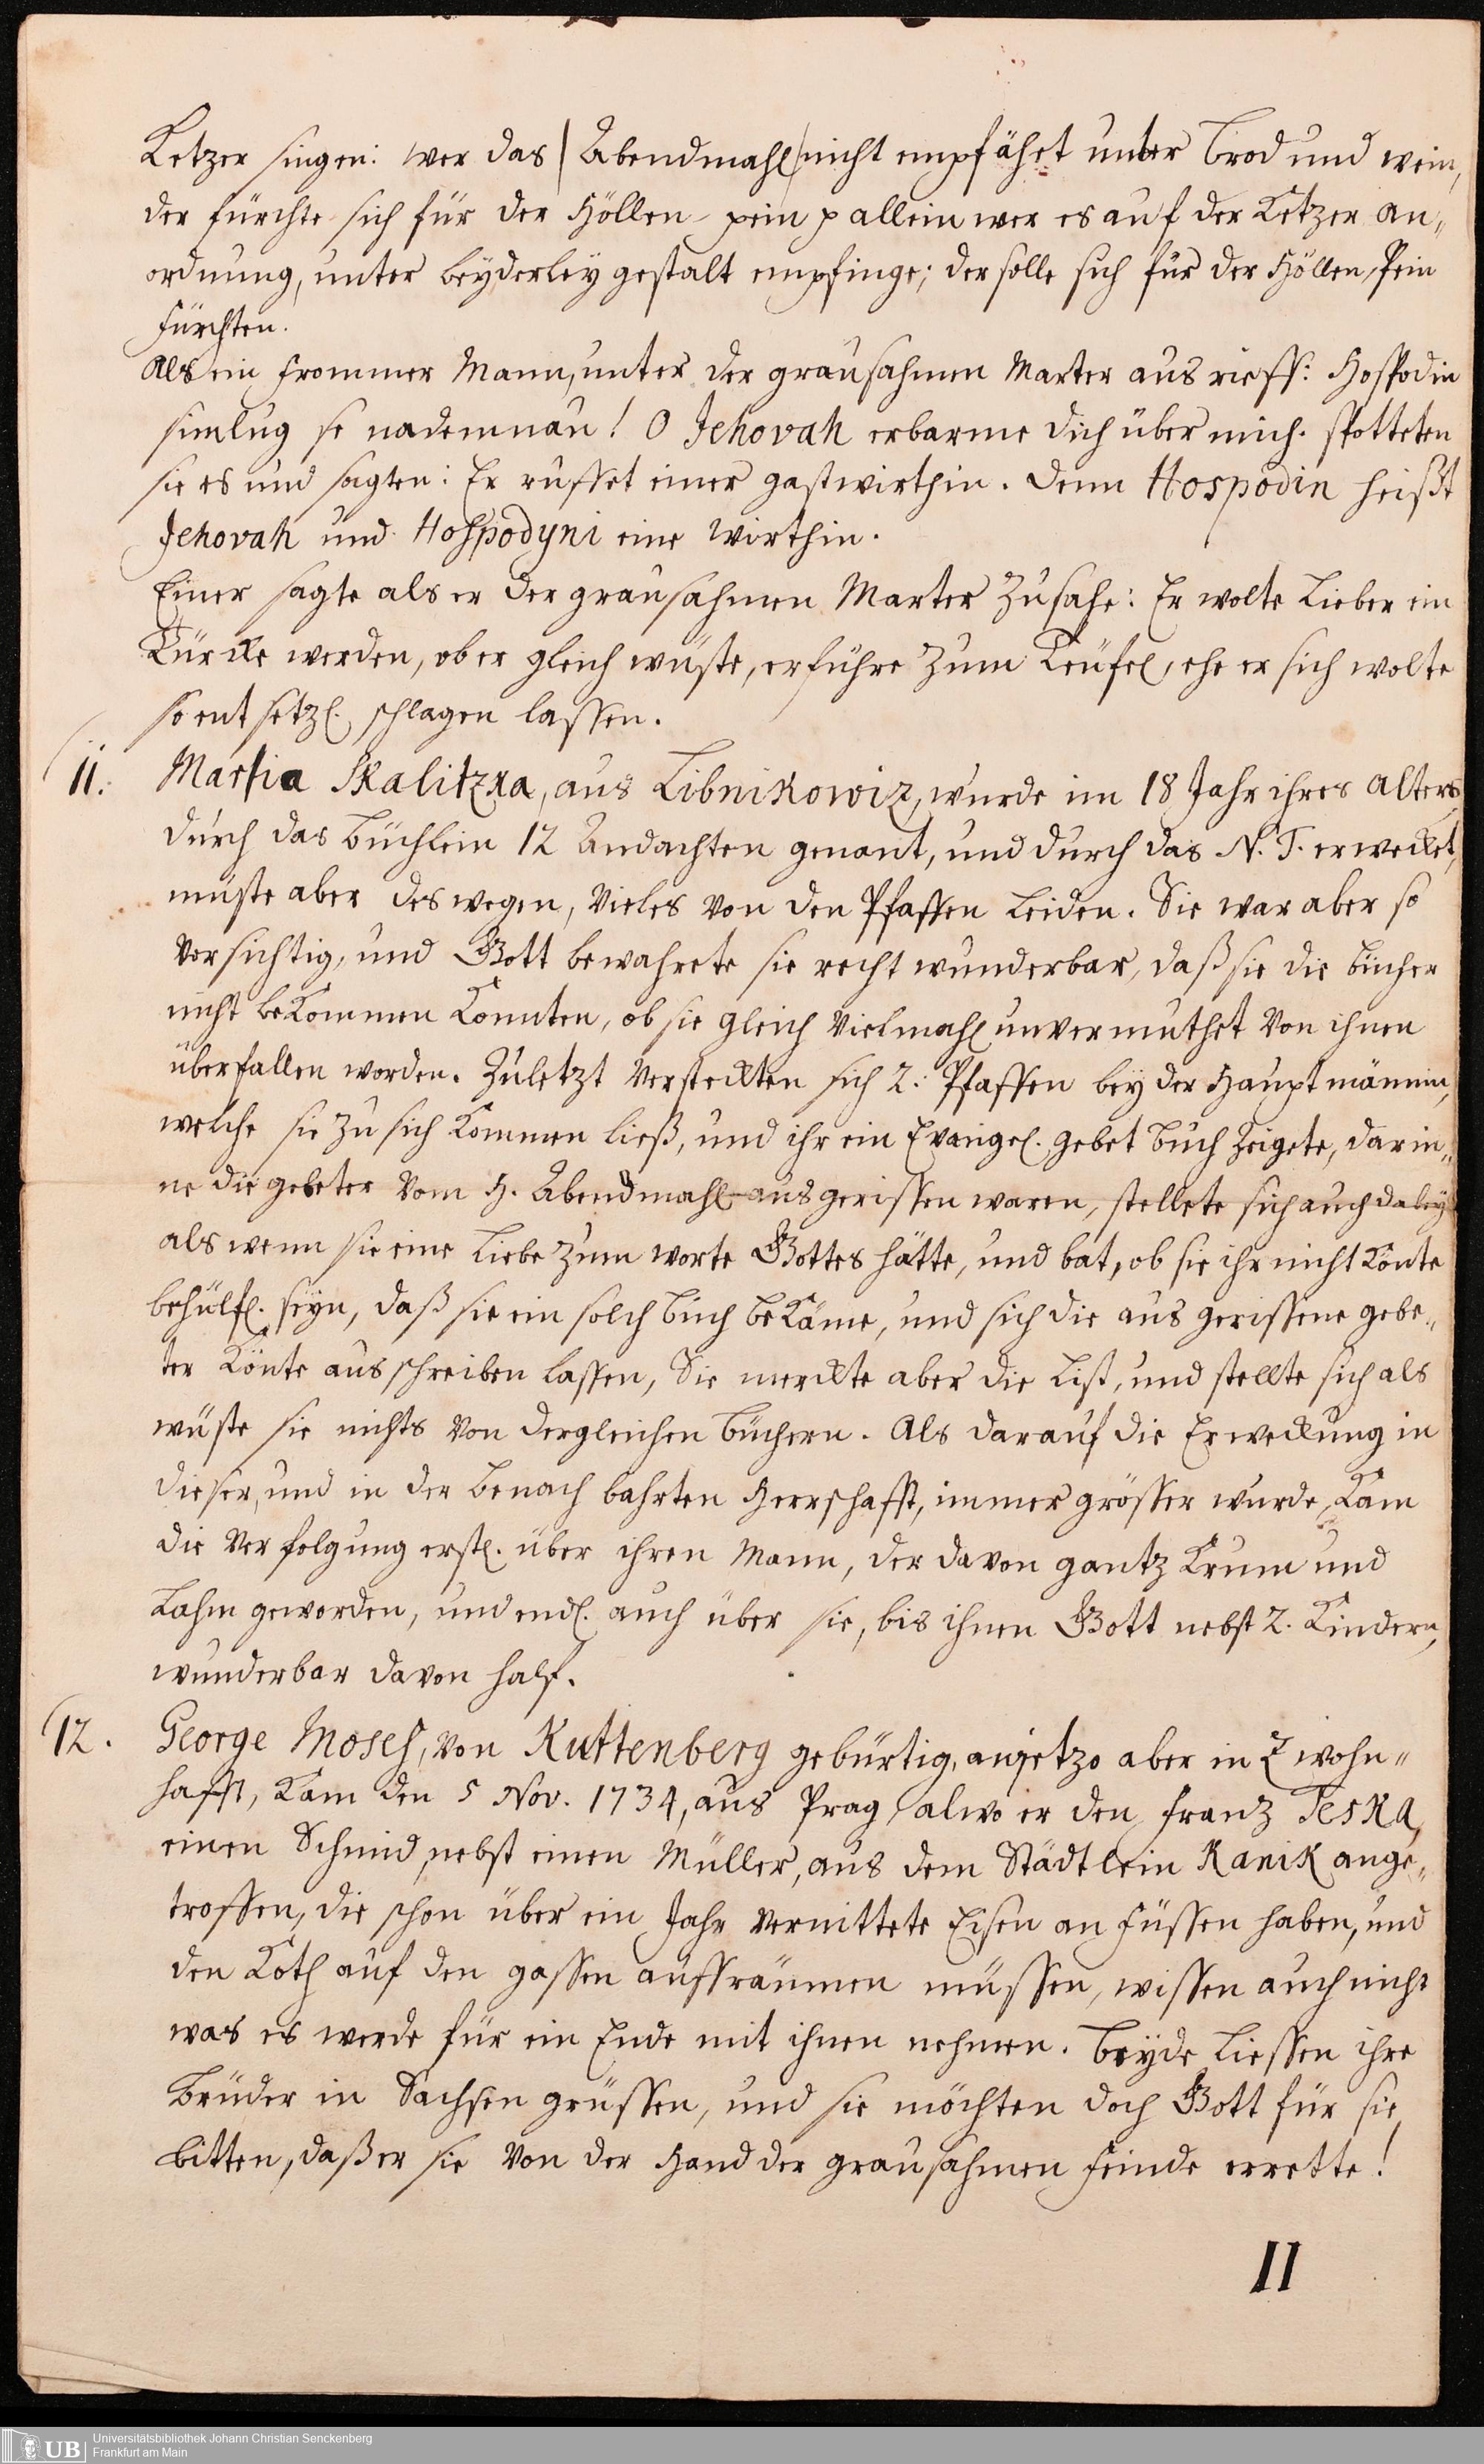 Ketzer singen: wer das / Abendmahl / nicht empfähet unter Brod und wein,
der fürchte sich für der Höllen-pein p allein wer es auf der Ketzer an„
ordnung, unter beyderley gestalt empfinge; der solle sich für der Höllen, Pein
fürchten.
Als ein frommer Mann, unter der grausahmen Marter aus rieff: Hospodin
smilug se nademnau! O Jehovah erbarme dich über mich. spotteten
sie es und sagten: Er ruffet einer gastwirthin. denn Hospodin heißt
Jehovah und Hospodyni eine Wirthin.
Einer sagte als er der grausahmen Marter zusahe: Er wolte lieber ein
Türcke werden, ob er gleich wüste, er führe zum Teufel, ehe er sich wolte
so entsetzl. schlagen lassen.
11. Marsia Skalitzka, aus Libnikowiz, wurde im 18 Jahr ihres Alters
durch das Büchlein 12 Andachten genant, und durch das N. T. erwecket,
muste aber deswegen, vieles von den Pfaffen leiden. Sie war aber so
vorsichtig, und Gott bewahrete sie recht wunderbar, daß sie die bücher
nicht bekommen konnten, ob sie gleich vielmahl unvermuthet von ihnen
überfallen worden. Zuletzt versteckten sich 2: Pfaffen bey der Hauptmännin,
welche sie zu sich kommen ließ, und ihr ein Evangel. gebet buch zeigete, darin„
ne die gebeter vom H. Abendmahl ausgerissen waren, stellete sich auch dabey
als wenn sie eine liebe zum worte Gottes hätte, und bat, ob sie ihr nicht könte
behülfl. seyn, daß sie ein solch buch bekäme, und sich die ausgerissene gebe„
ter könte ausschreiben lassen, Sie merckte aber die list, und stellte sich als
wüste sie nichts von dergleichen büchern. Als darauf die Erweckung in
dieser, und in der benachbahrten Herrschafft, immer grösser wurde, kam
die verfolgung erstl. über ihren Mann, der davon gantz krum und
lahm geworden, und endl. auch über sie, bis ihnen Gott nebst 2. Kindern,
wunderbar davon half.
12. George Moses, von Kuttenberg gebürtig, anjetzo aber in Z wohn„
hafft, kam den 5 Nov. 1734, aus Prag, alwo er den Franz Teska,
einen Schmid, nebst einen Müller, aus dem Städtlein Kanik ange„
troffen, die schon über ein Jahr vernittete Eisen an füssen haben, und
den Koth auf den gassen auffräumen müssen, wissen auch nicht
was es werde für ein Ende mit ihnen nehmen. beyde liessen ihre
brüder in Sachsen grüssen, und sie möchten doch Gott für sie
bitten, daß er sie von der Hand der grausahmen feinde errette!
II
UB Universitätsbibliothek Johann Christian Senckenberg
Frankfurt am Main